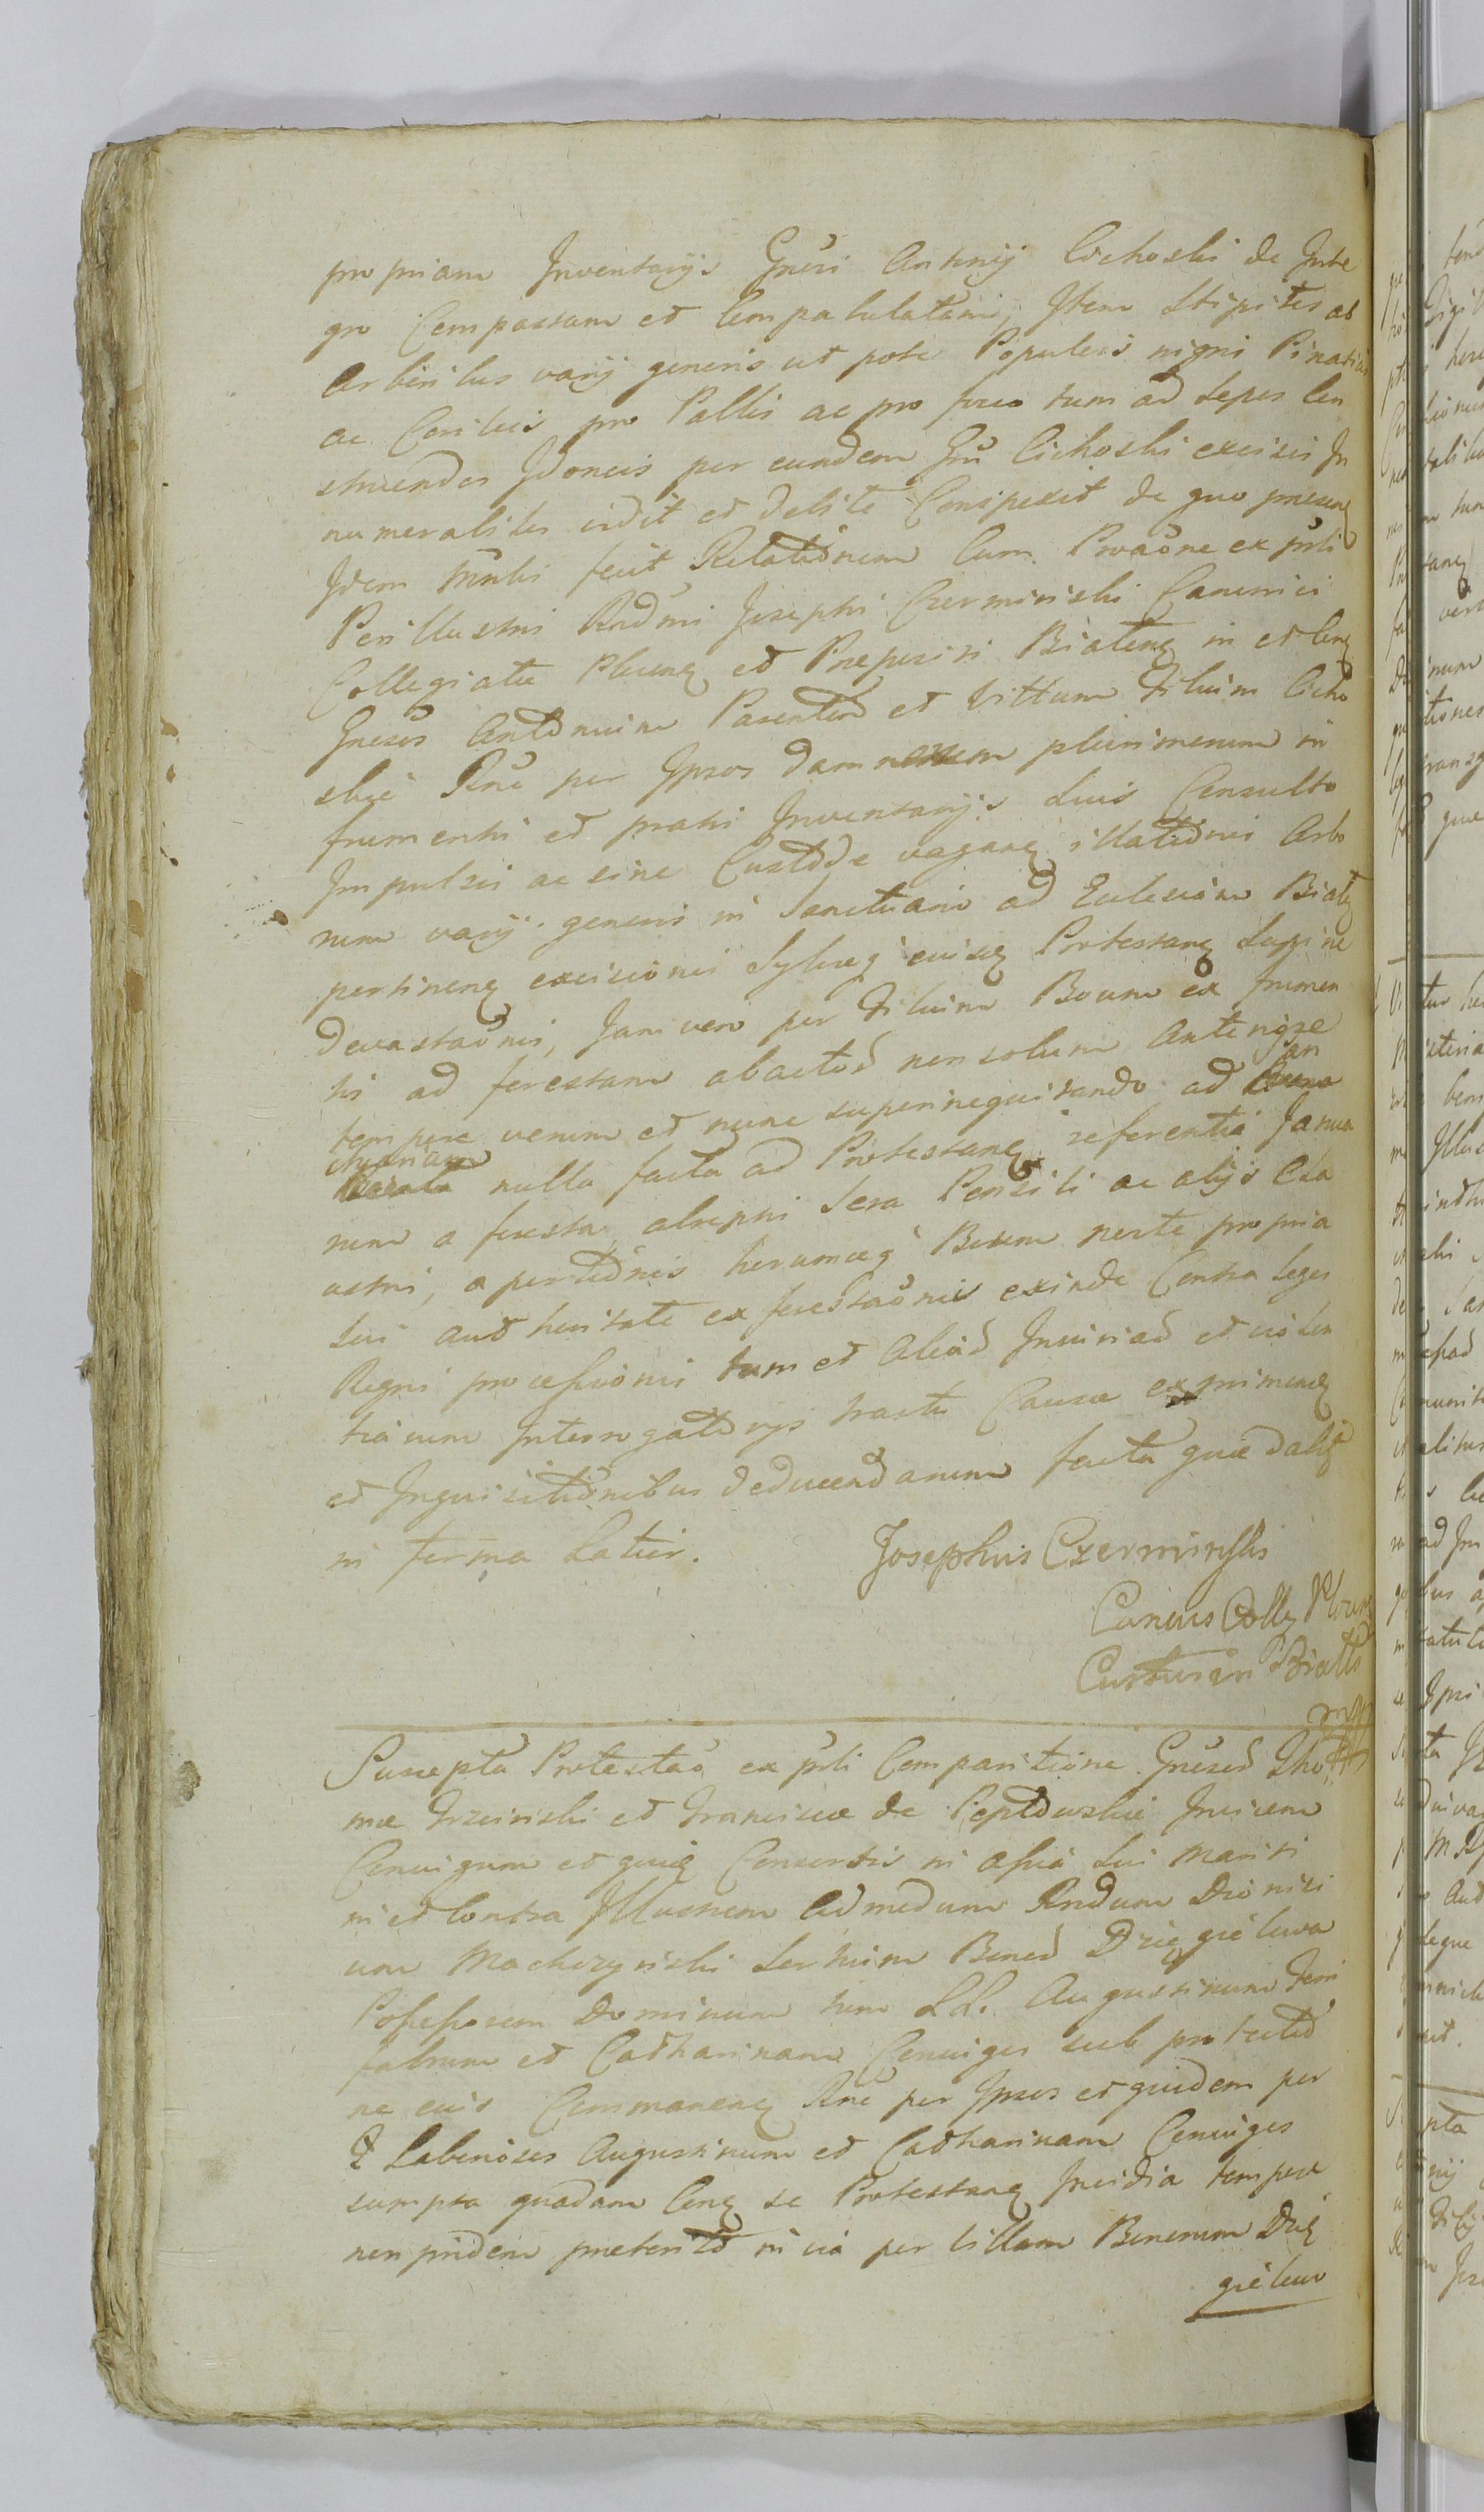 propriam Inventarijs Grusi Antonij Cichoski de Inte
gro Compassam et Compabulatam, Item Stipites ab
Arboribus varij generis ut pote Populeis nigri Pinastris
ac Corileis pro Pallis ac pro foco tum ad Sepes Con
struendas Idoneis per eundem Gru Cichoski excisis In
numerabiles vidit et debite Conspexit de quo praesens
Idem Mnlis fecit Relationem Cum Proaone ex prti
Perillustri Rndmi Josephi Czerminski Canonici
Collegiatae Plocens et Prepositi Bialens in et Cong
Grusos Antonium Parentem et Vittum Filium Cicho
skie Rne per Ipsos damnorum plurimorum in
frumenti et prati Inventarijs Suis Consulto
Impulsis ac sine Custode vagang illationis Arbo
rum varij generis in Sanctuario ad Ecclesiam Bialg
pertineng excisionis Sylvaeq eiusq Protestang Lupine
devastaonis, Jam vero per Filium Boum ex frumen
tis ad forestam abactos non solum Anteriore
tempore verum et nunc superinequitando ad an
churiam nulla facta ad Protestang referentia Janua
rum a foresta abrepti Sera Pensili ac alijs Cla
ustri, apertionis horumq Boum nocte propria
Sui authoritate ex forestaonis exinde Contra leges
Regni processionis tum et Aliad Iniuriad et violen
tiarum Interrogatorijs tractu Causae exprimeng
et Inquisitionibus deducendarum facta quae dabit
in forma Latior.
Josephus Czerminskis
Canius Colleg Plocen
Custusin Bialts
mpp
Suscepta Protestao ex prti Comparitione Grused Tho
mae Trzcinski et Franciscae de Peptowskie Invicem
Coniugum et quidq Consortis in assia Sui Mariti
in et Contra Illustrem Admodum Rndum Dionisi
um Machczynski Sortium Bonod Dzięgielewo
Possessorem Dominum tum LL. Augustinum Ferri
fabrum et Catharinam Coniuges sub protectio
ne eius Commaneng Rne per Ipsos et quidem per
Laboriosos Augustinum et Catharinam Coniuges
sumpta quadam Cong se Protestang Invidia tempore
non pridem preterito in via per Villam Bonorum Dzię
gielew